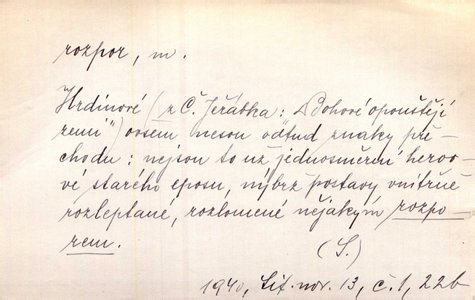 rozpor, m.
Hrdinové (z Č. Jeřábka: „Bohové opouštějí
zemi“) ovšem nesou odtud znaky pře-
chodu: nejsou to už jednosměrní hero-
vé starého eposu, nýbrž postavy vnitřně
rozleptané, rozlomené nějakým rozpo-
rem.
(S.)
1940, Lit. nov. 13, č. 1, 22b